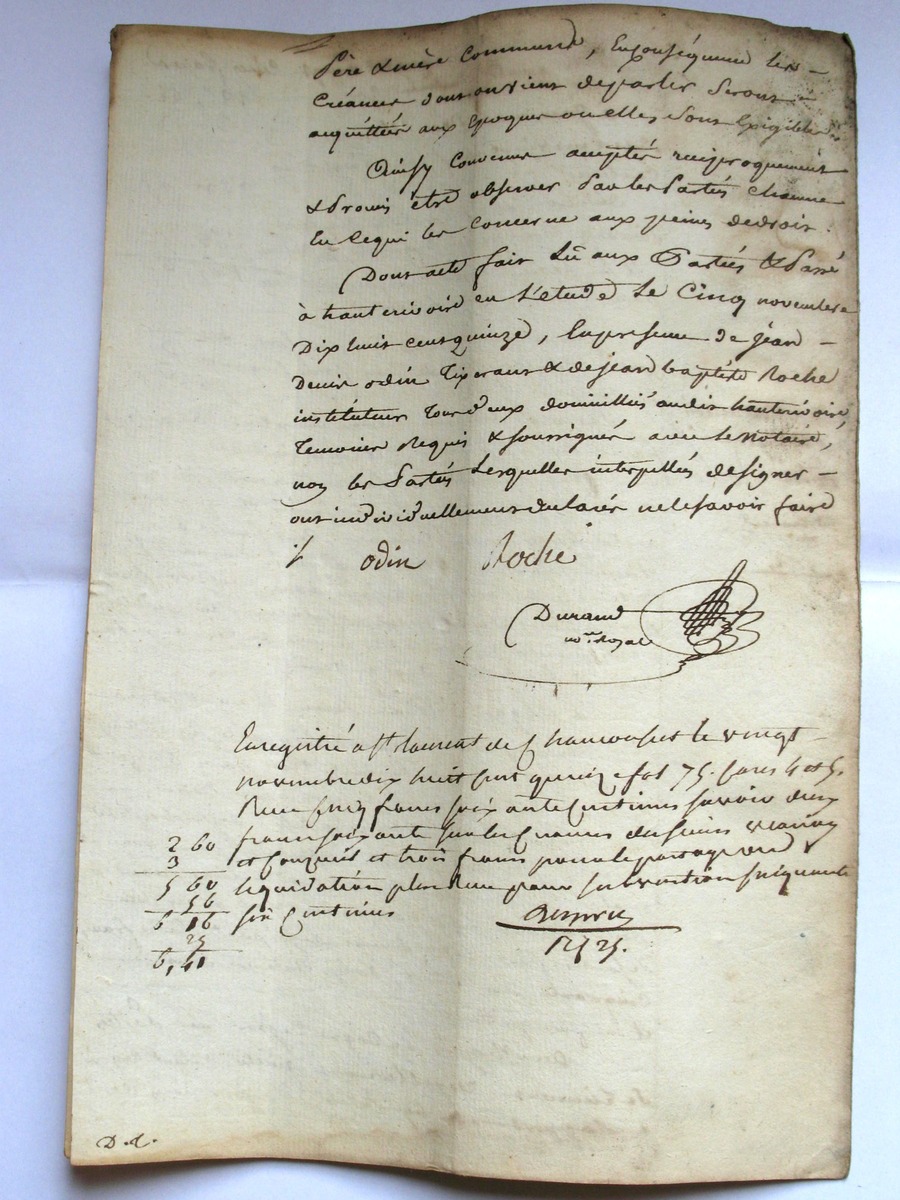 Père & mère Commune, En conséquence les
Créances dont on vient de parler Seront
acquittées aux époques ou elles Sont Exigibles
Ainsy Convenu accepté réciproquement
& Promis être observer Par les Parties Chacune
En ce qui les Concerne aux peines de droit.
Dont acte fait Lû aux Parties & Passé
à hauterivoire en L'etude Le Cinq novembre
Dix huit cent quinze, En présence de jean
Denis odin Tixerant & de jean baptiste Roche
instituteur Tous deux domiciliés audit hauterivoire,
Temoins Requis & soussignés avec le Notaire,
non les Parties Lesquelles interpellées de signer
ont individuellement declaré ne le savoir faire
odin Roche
Durand
nore. Royal
Enregistré a St laurent de Chamousset le vingt
novembre dix huit cent quinze fol 75. Cases 4 et 5.
Recu Cinq francs soixante Centimes savoir deux
2 60 francs soixante sur les
3 et trois francs pour le partage
5 60 liquidation plus Recu pour subvention Cinquante
56
6 16 six Centimes
25
6,41
D.d.